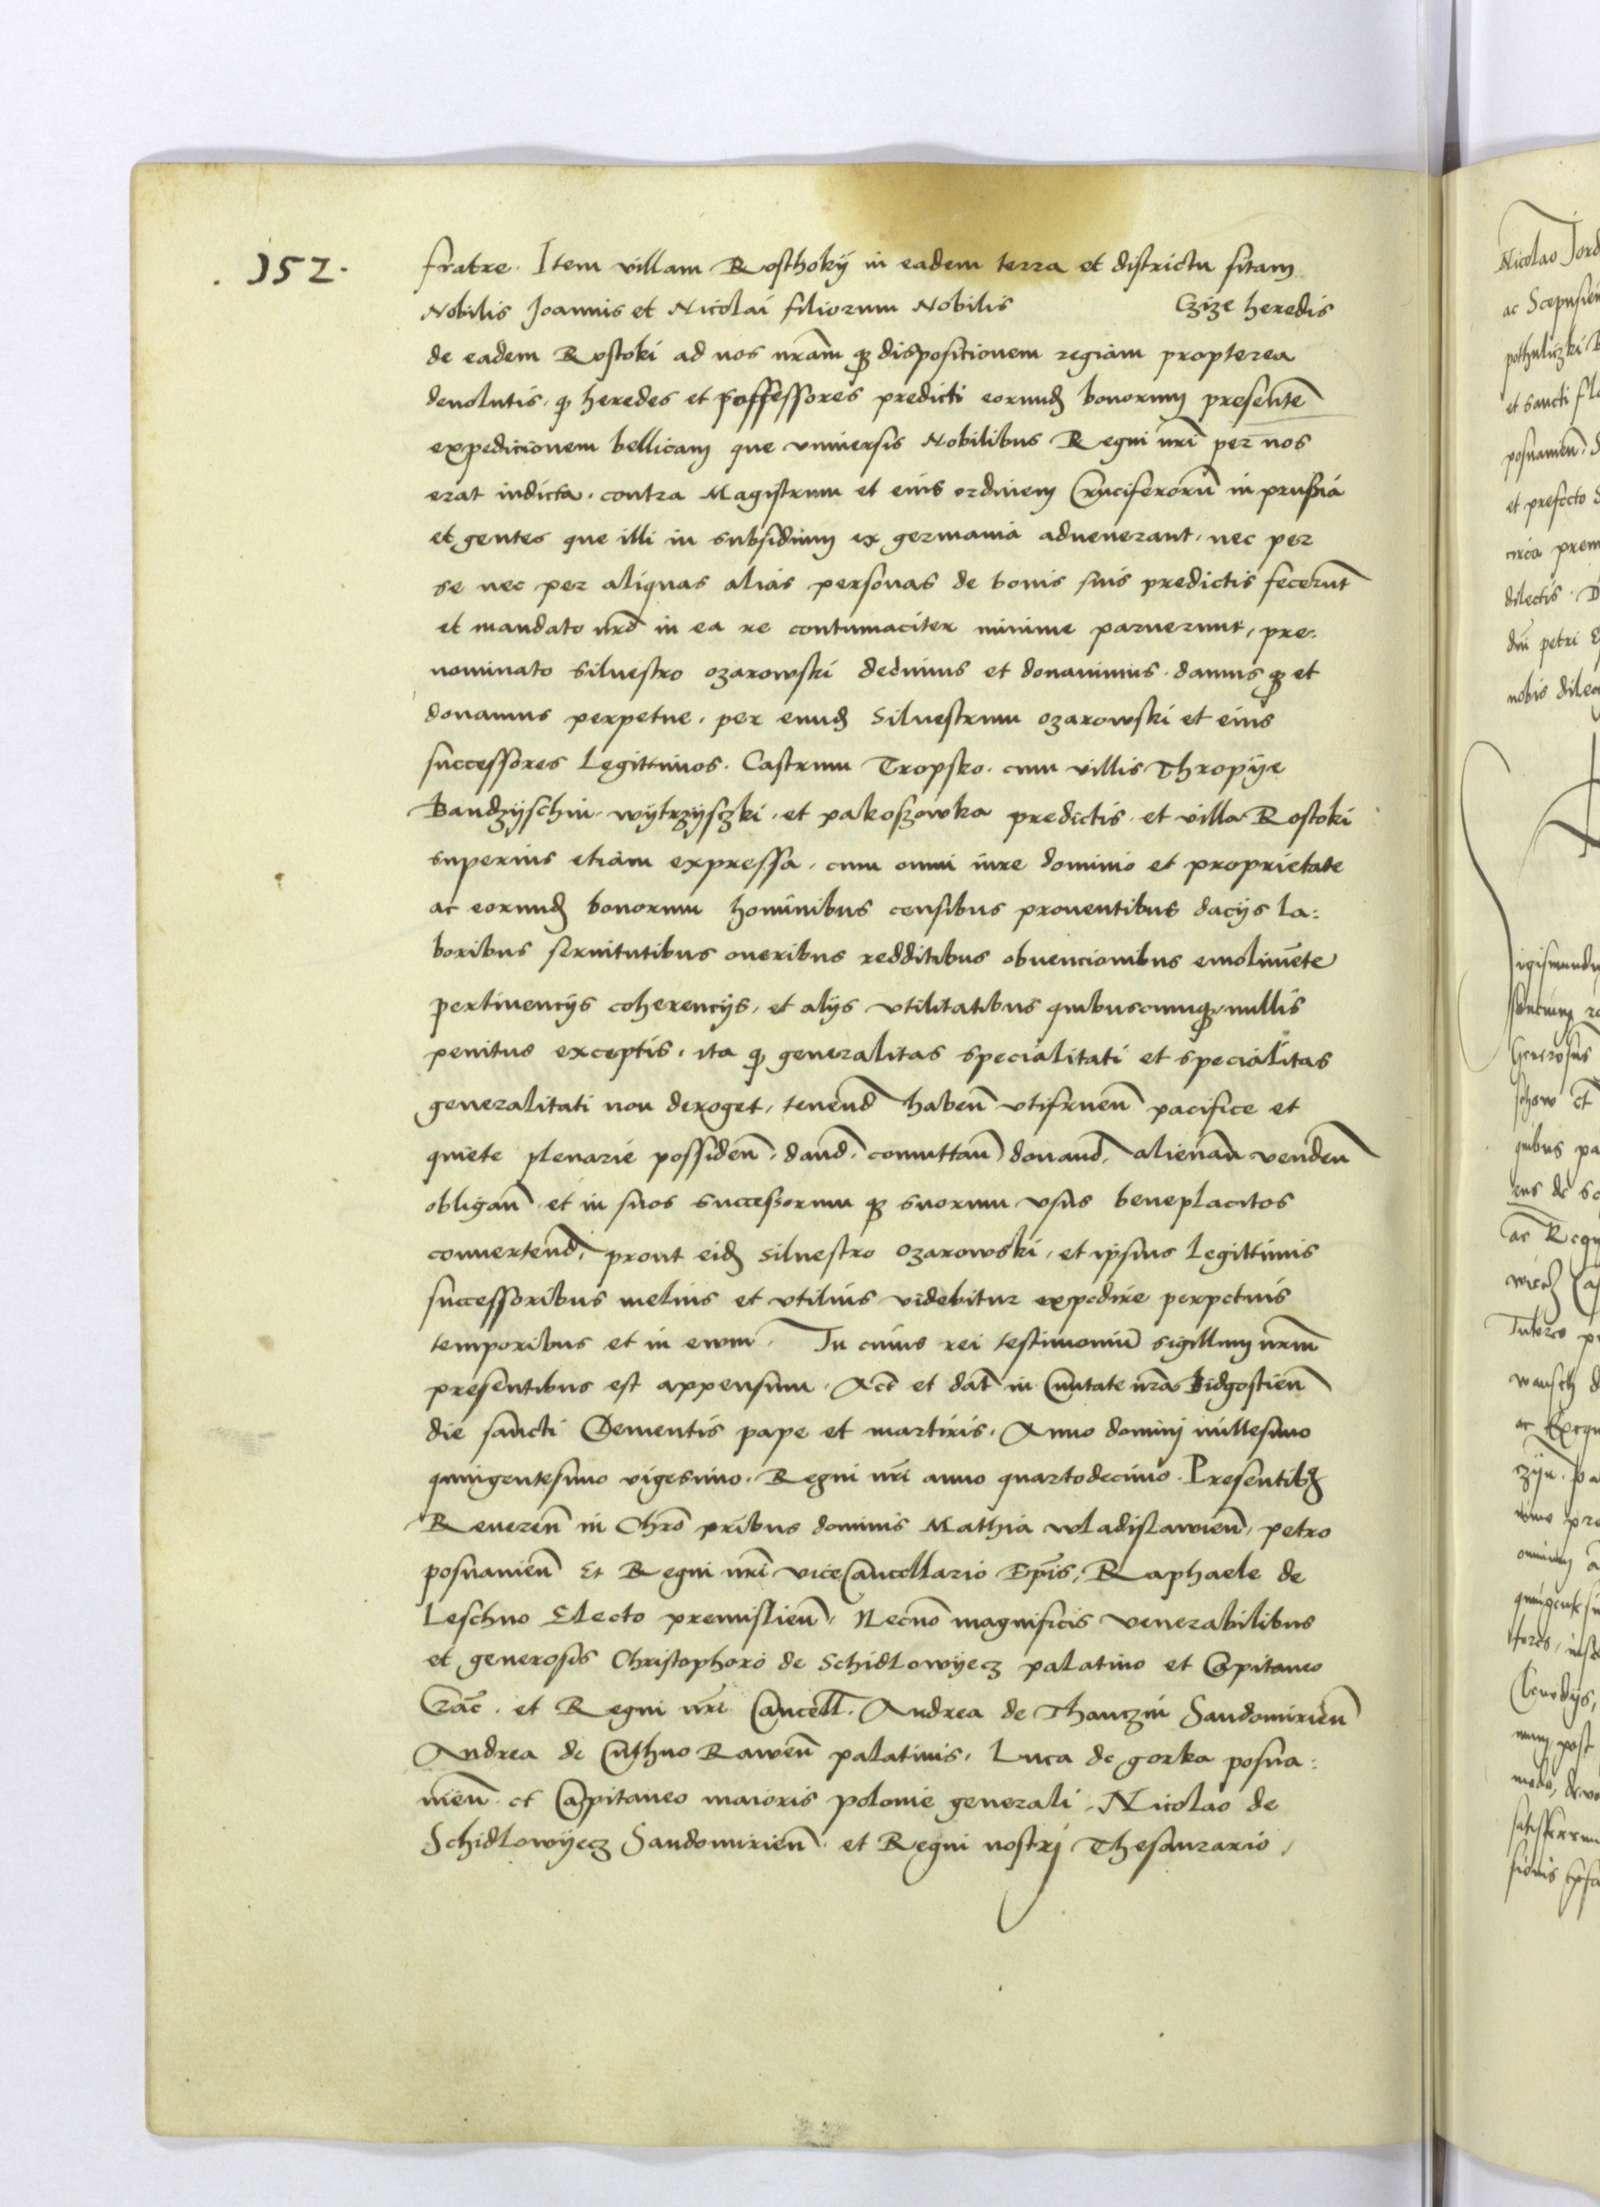 . 152 .
fratre. Item villam Rosthokij in eadem terra et districtu sitam
Nobilis Joannis et Nicolai filiorum Nobilis Czize heredis
de eadem Rostoki ad nos nr̃am qȝ dispositionem regiam propterea
devolutis, qȝ heredes et possessores predicti eorundȝ bonorum presentẽ
expedicionem bellicam que vniuersis Nobilibus Regni nr̃i per nos
erat indicta, contra Magistrum et eius ordinem Cruciferorũ in prussia
et gentes que illi in subsidium ex germania aduenerant, nec per
se nec per aliquas alias personas de bonis suis predictis fecerũt
et mandato nr̃o in ea re contumaciter minime paruerunt, pre:
nominato Siluestro ozarowski dedimus et donauimus. damus qȝ et
donamus perpetue, per eundȝ Siluestrum ozarowski et eius
successores Legittimos. Castrum Tropsko. cum villis Thropije
Bandzyschin. wytrzysczki. et pakoszowka predictis. et villa Rostoki
superius etiam expressa, cum omni iure dominio et proprietate
ac eorundȝ bonorum hominibus censibus prouentibus dacijs la:
boribus seruitutibus oneribus redditibus obuencionibus emolimẽte
pertinencijs coherencijs, et alijs vtilitatibus quibuscumqȝ, nullis
penitus exceptis, ita qȝ generalitas specialitati et specialitas
generalitati non deroget, tenend̃ habeñ vtifrueñ pacifice et
quiete plenarie possideñ, dand̃, comuttañ donand̃, alienañ vendeñ
obligañ et in suos successorum qȝ suorum vsus beneplacitos
conuertend̃, prout eidȝ Siluestro ozarowski, et ipsius Legittimis
successoribus melius et vtilius videbitur expedire perpetuis
temporibus et in ewm. In cuius rei testimoniũ sigillum nr̃um
presentibus est appensum. Act̃ et dat̃ in Ciuitate nr̃a Bidgostieñ
die sancti Clementis pape et martiris. Anno domini millesimo
quingentesimo vigesimo. Regni nr̃i anno quartodecimo. Presentibȝ
Reuereñ in Chr̃o pr̃ibus dominis Mathia wladislawieñ, petro
posnanieñ Et Regni nr̃i viceCancellario Ep̃is, Raphaele de
Leschno Electo premislieñ, Necnõ magnificis venerabilibus
et generosis Christophoro de Schidlowijecz palatino et Capitaneo
Crac̃. et Regni nr̃i Cancell̃. Andrea de Thanczin Sandomirieñ
Andrea de Cuthno Raweñ palatinis, Luca de gorka posna:
nieñ et Capitaneo maioris polonie generali, Nicolao de
Schidlowijecz Sandomirieñ. et Regni nostri Thesaurario,